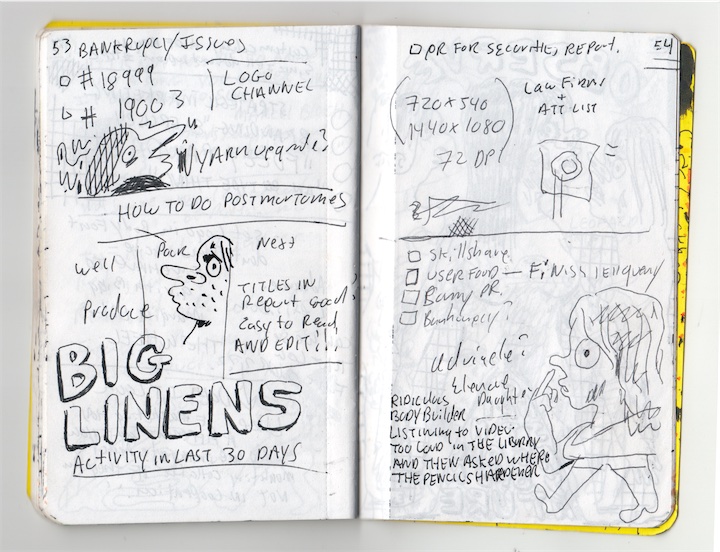 53 BANKRUPCY/ISSUES
#18999
# 19003
LOGO
CHANNEL
HOW TO DO POSTMORTOMES
Well
Poor
Next
Produce
TITLES IN
Report Good!
Easy to Read
AND EDIT!!!
BIG
LINENS
ACTIVITY IN LAST 30 DAYS
PR FOR SECURITIES REPORT.
54
720x540
1440x1080
72 DPI
Law Firms
+
ATT LIST
Skillshare
USER FOOD — Finish
PR.
Bankrupcy?
Elenore
Daughter
RIDICULAS
BODY BUILDER
LISTINING TO VIDEO
TOO LOUD IN THE LIBRARY
AND THEN ASKED WHERE
THE PENCIL SHARDENER